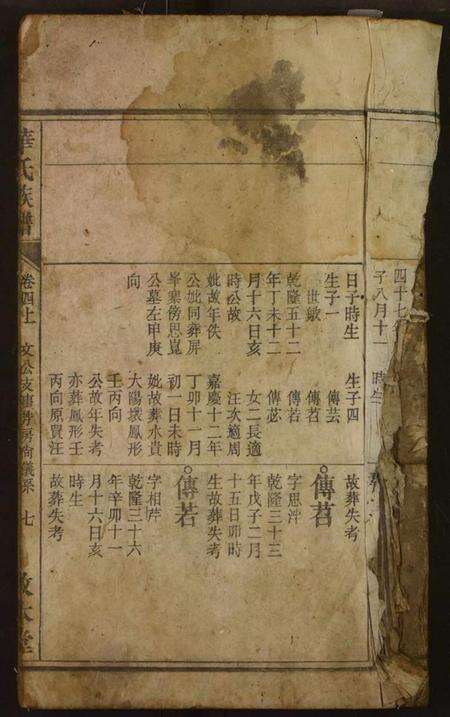 四十七
子八月十一
時生
日子時生
生子一
世敏
乾隆五十二
年丁未十二
月十六日亥
時公故
妣故年佚
公妣同葬屏
峯寨傍思嵬
公墓左甲庚
向
生子四
傳芸
傳苕
傳若
傳苾
女二長適
汪次適周
嘉慶十二年
丁卯十一月
初一日未時
妣故葬水貴
大陽壊鳳形
壬丙向
公故年失考
亦葬鳳形壬
丙向原買汪
故葬失考
傳苕
字思泮
乾隆三十三
年戊子二月
十五日卯時
生故葬失考
傳若
字相芹
乾隆三十六
年辛卯十一
月十六日亥
時生
故葬失考
氏族譜
卷四上
文公支 房尚儀系
七
本堂